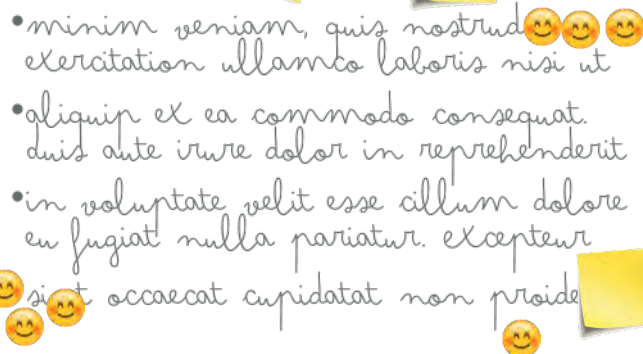 •minim veniam, quis nostrud
exercitation ullamco laboris nisi ut
•aliquip ex ea commodo consequat.
duis aute irure dolor in reprehenderit
•in voluptate velit esse cillum dolore
eu fugiat nulla pariatur. excepteur
occaecat cupidatat non